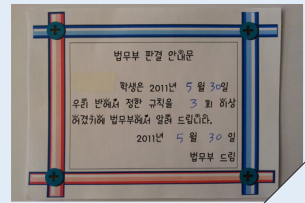 법무부 판결 안내문
학생은 2011년 5 월 30일
우리 반에서 정한 규칙을 3 회 이상
어겼기에 법무부에서 알려 드립니다.
2011년 5 월 30 일
법무부 드림